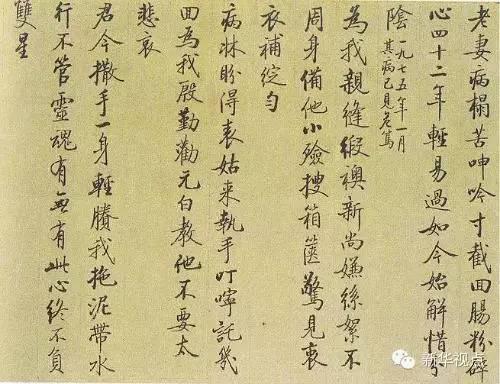 老妻病榻苦呻吟寸截回腸粉碎
心四十二年輕易過如今始解惜分
陰 一九七五年一月
其病已見危篤
為我親縫緞襖新尚嫌絲絮不
周身備他小殮搜箱篋驚見衷
衣補綻勻
病牀盼得表姑来執手叮嚀託幾
回為我殷勤勸元白教他不要太
悲哀
君今撒手一身輕賸我拖泥帶水
行不管靈魂有無有此心終不負
雙星
新华视点